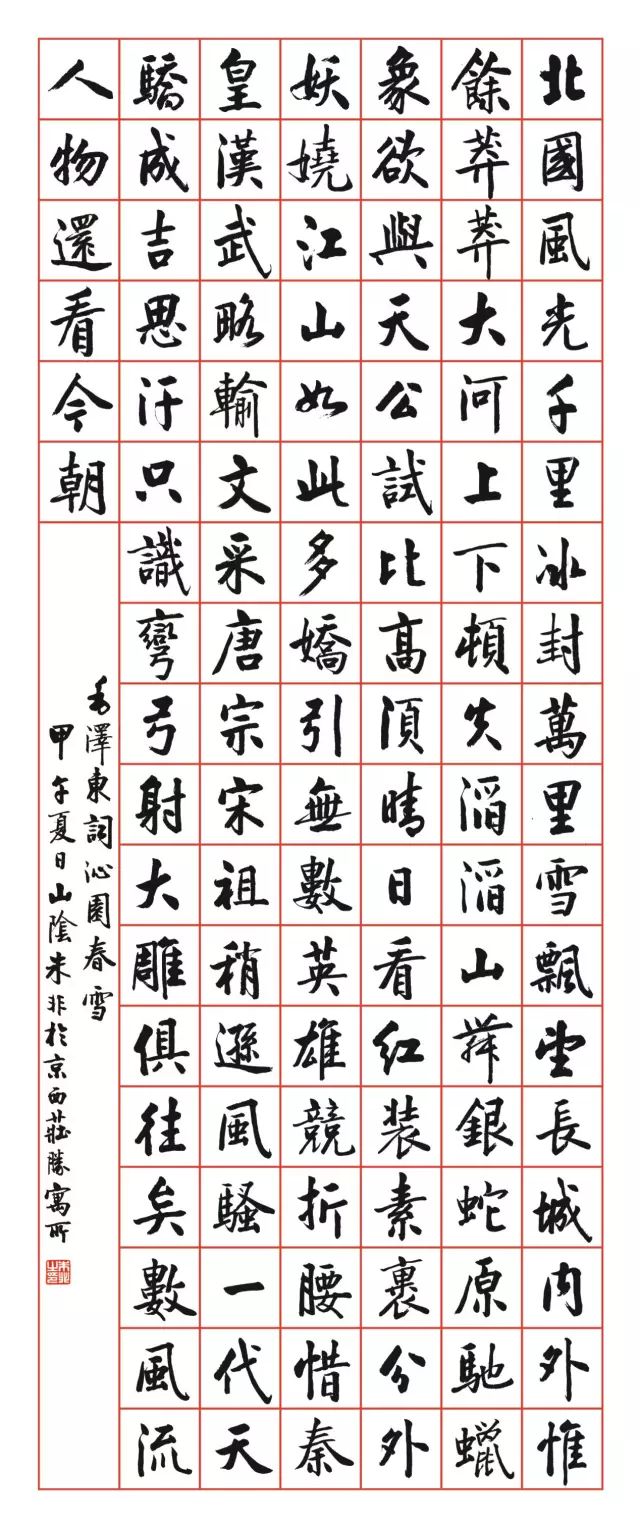 北國風光千里冰封萬里雪飄望長城內外惟
餘莽莽大河上下頓失滔滔山舞銀蛇原馳蠟
象欲與天公試比高須晴日看紅裝素裹分外
妖嬈江山如此多嬌引無數英雄競折腰惜秦
皇漢武略輸文采唐宗宋祖稍遜風騷一代天
驕成吉思汗只識彎弓射大雕俱往矣數風流
人物還看今朝
毛澤東詞沁園春雪
甲午夏日山陰朱非於京西莊勝寓所